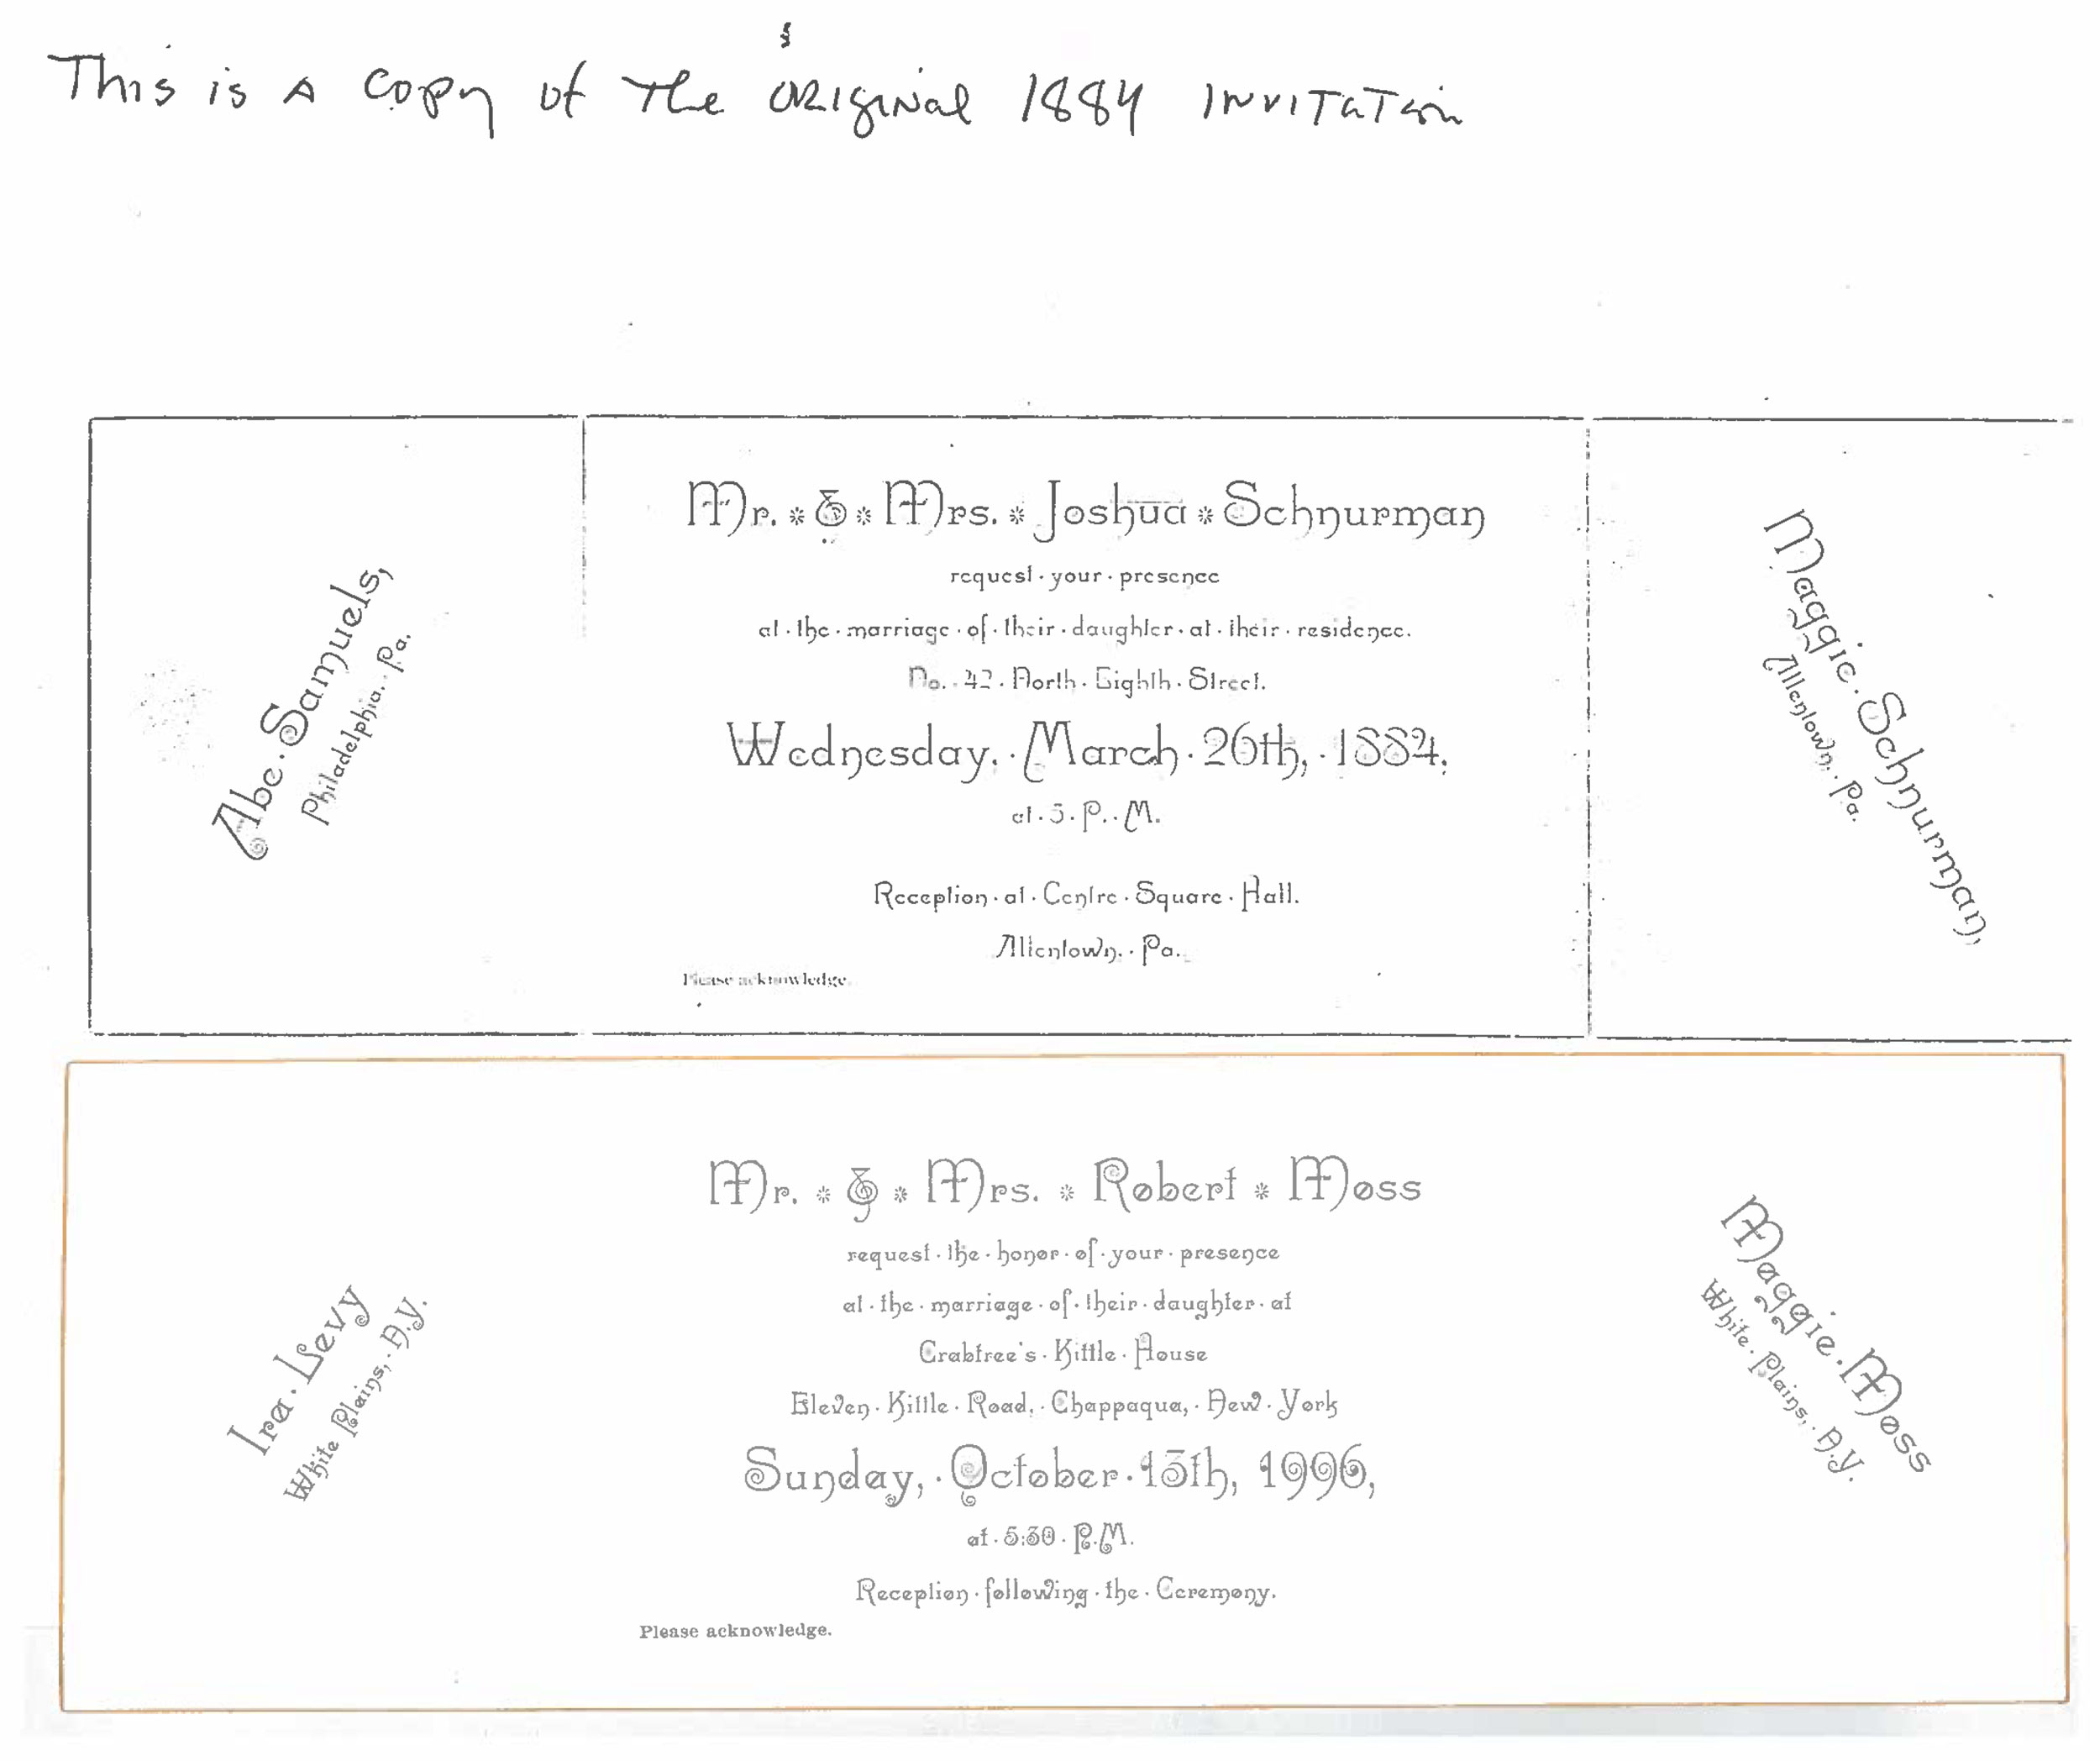 This is A copy of the ORIginal 1884 INVITATion
Mr. * & * Mrs. * Joshua * Schnurman
request · your · presence
at · the · marriage · of · their · daughter · at · their · residence.
No. · 42 · North · Eighth · Street.
Wednesday, · March · 26th, · 1884,
at · 5 · P. · M.
Reception · at · Centre · Square · Hall.
Allentown, · Pa.
Please acknowledge.
Abe · Samuels,
Philadelphia, · Pa.
Maggie · Schnurman,
Allentown, · Pa.
Mr. * & * Mrs. * Robert * Moss
request · the · honor · of · your · presence
at · the · marriage · of · their · daughter · at
Crabtree's · Kittle · House
Eleven · Kittle · Road, · Chappaqua, · New · York
Sunday, · October · 13th, 1996,
at · 5:30 · P.M.
Reception · following · the · Ceremony.
Please acknowledge.
Ira · Levy
White Plains, · N.Y.
Maggie · Moss
White · Plains, · N.Y.